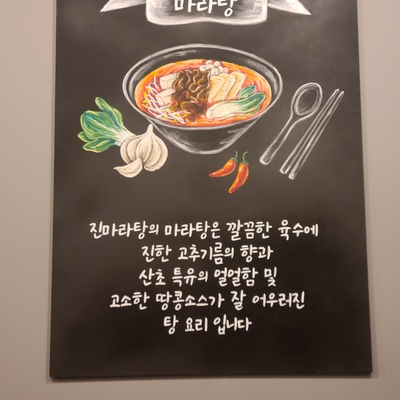 마라탕
진마라탕의 마라탕은 깔끔한 육수에
진한 고추기름의 향과
산초 특유의 얼얼함 및
고소한 땅콩소스가 잘 어우러진
탕 요리 입니다